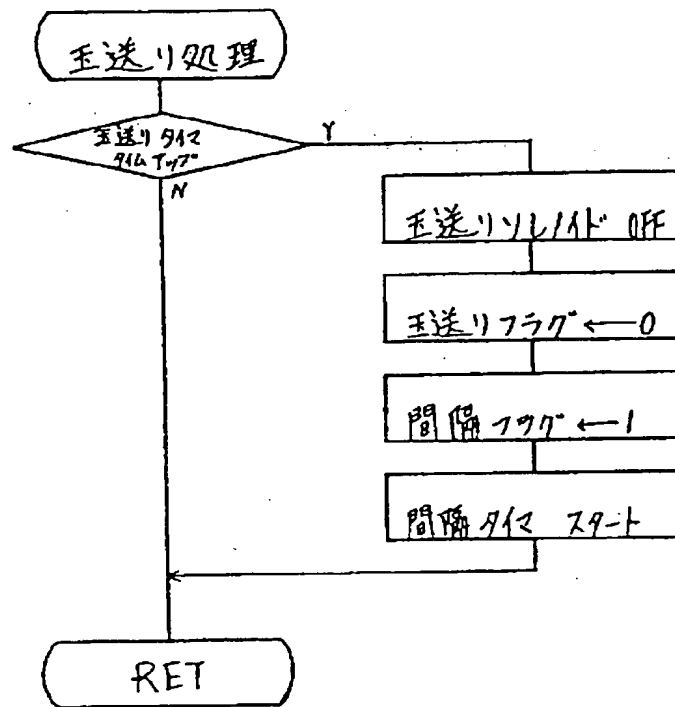 玉送り処理
玉送りタイマ
タイムアップ
Y
N
玉送りソレノイド OFF
玉送りフラグ ← 0
間隔フラグ ← 1
間隔タイマ スタート
RET